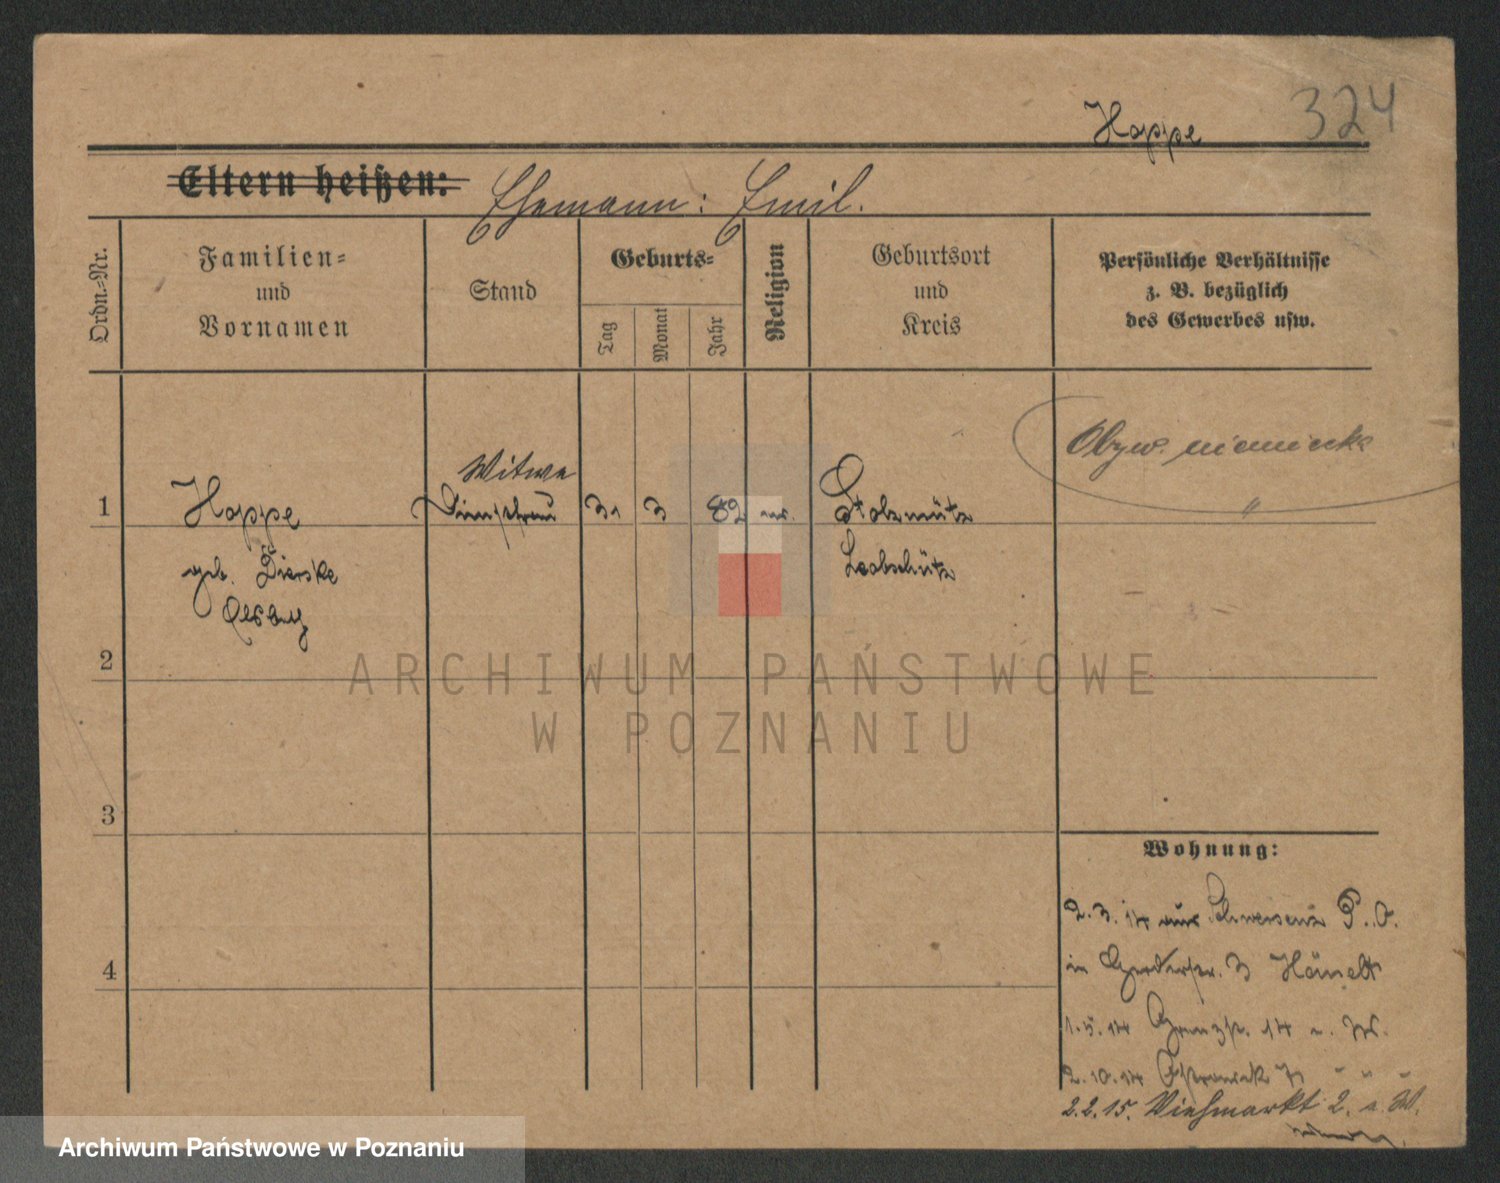 324
Hoppe
Eltern heißen: Ehemann: Emil.
Ordn.-Nr.
Familien-
und
Vornamen
Stand
Geburts-
Tag
Monat
Jahr
Religion
Geburtsort
und
Kreis
Persönliche Verhältnisse
z. B. bezüglich
des Gewerbes usw.
Obyw. niemiecka
"
Witwe
1 Hoppe 31 3 82 Stolzmütz
geb. Dierske Leobschütz
2
3
4
Wohnung:
2.3.14 aus Schwersenz P. O.
in 3
1.5.14 Grenzstr. 14 a. W.
2.10.14 Ostrowek
2.2.15. Viehmarkt 2. a. W.
ARCHIWUM PAŃSTWOWE
W POZNANIU
Archiwum Państwowe w Poznaniu